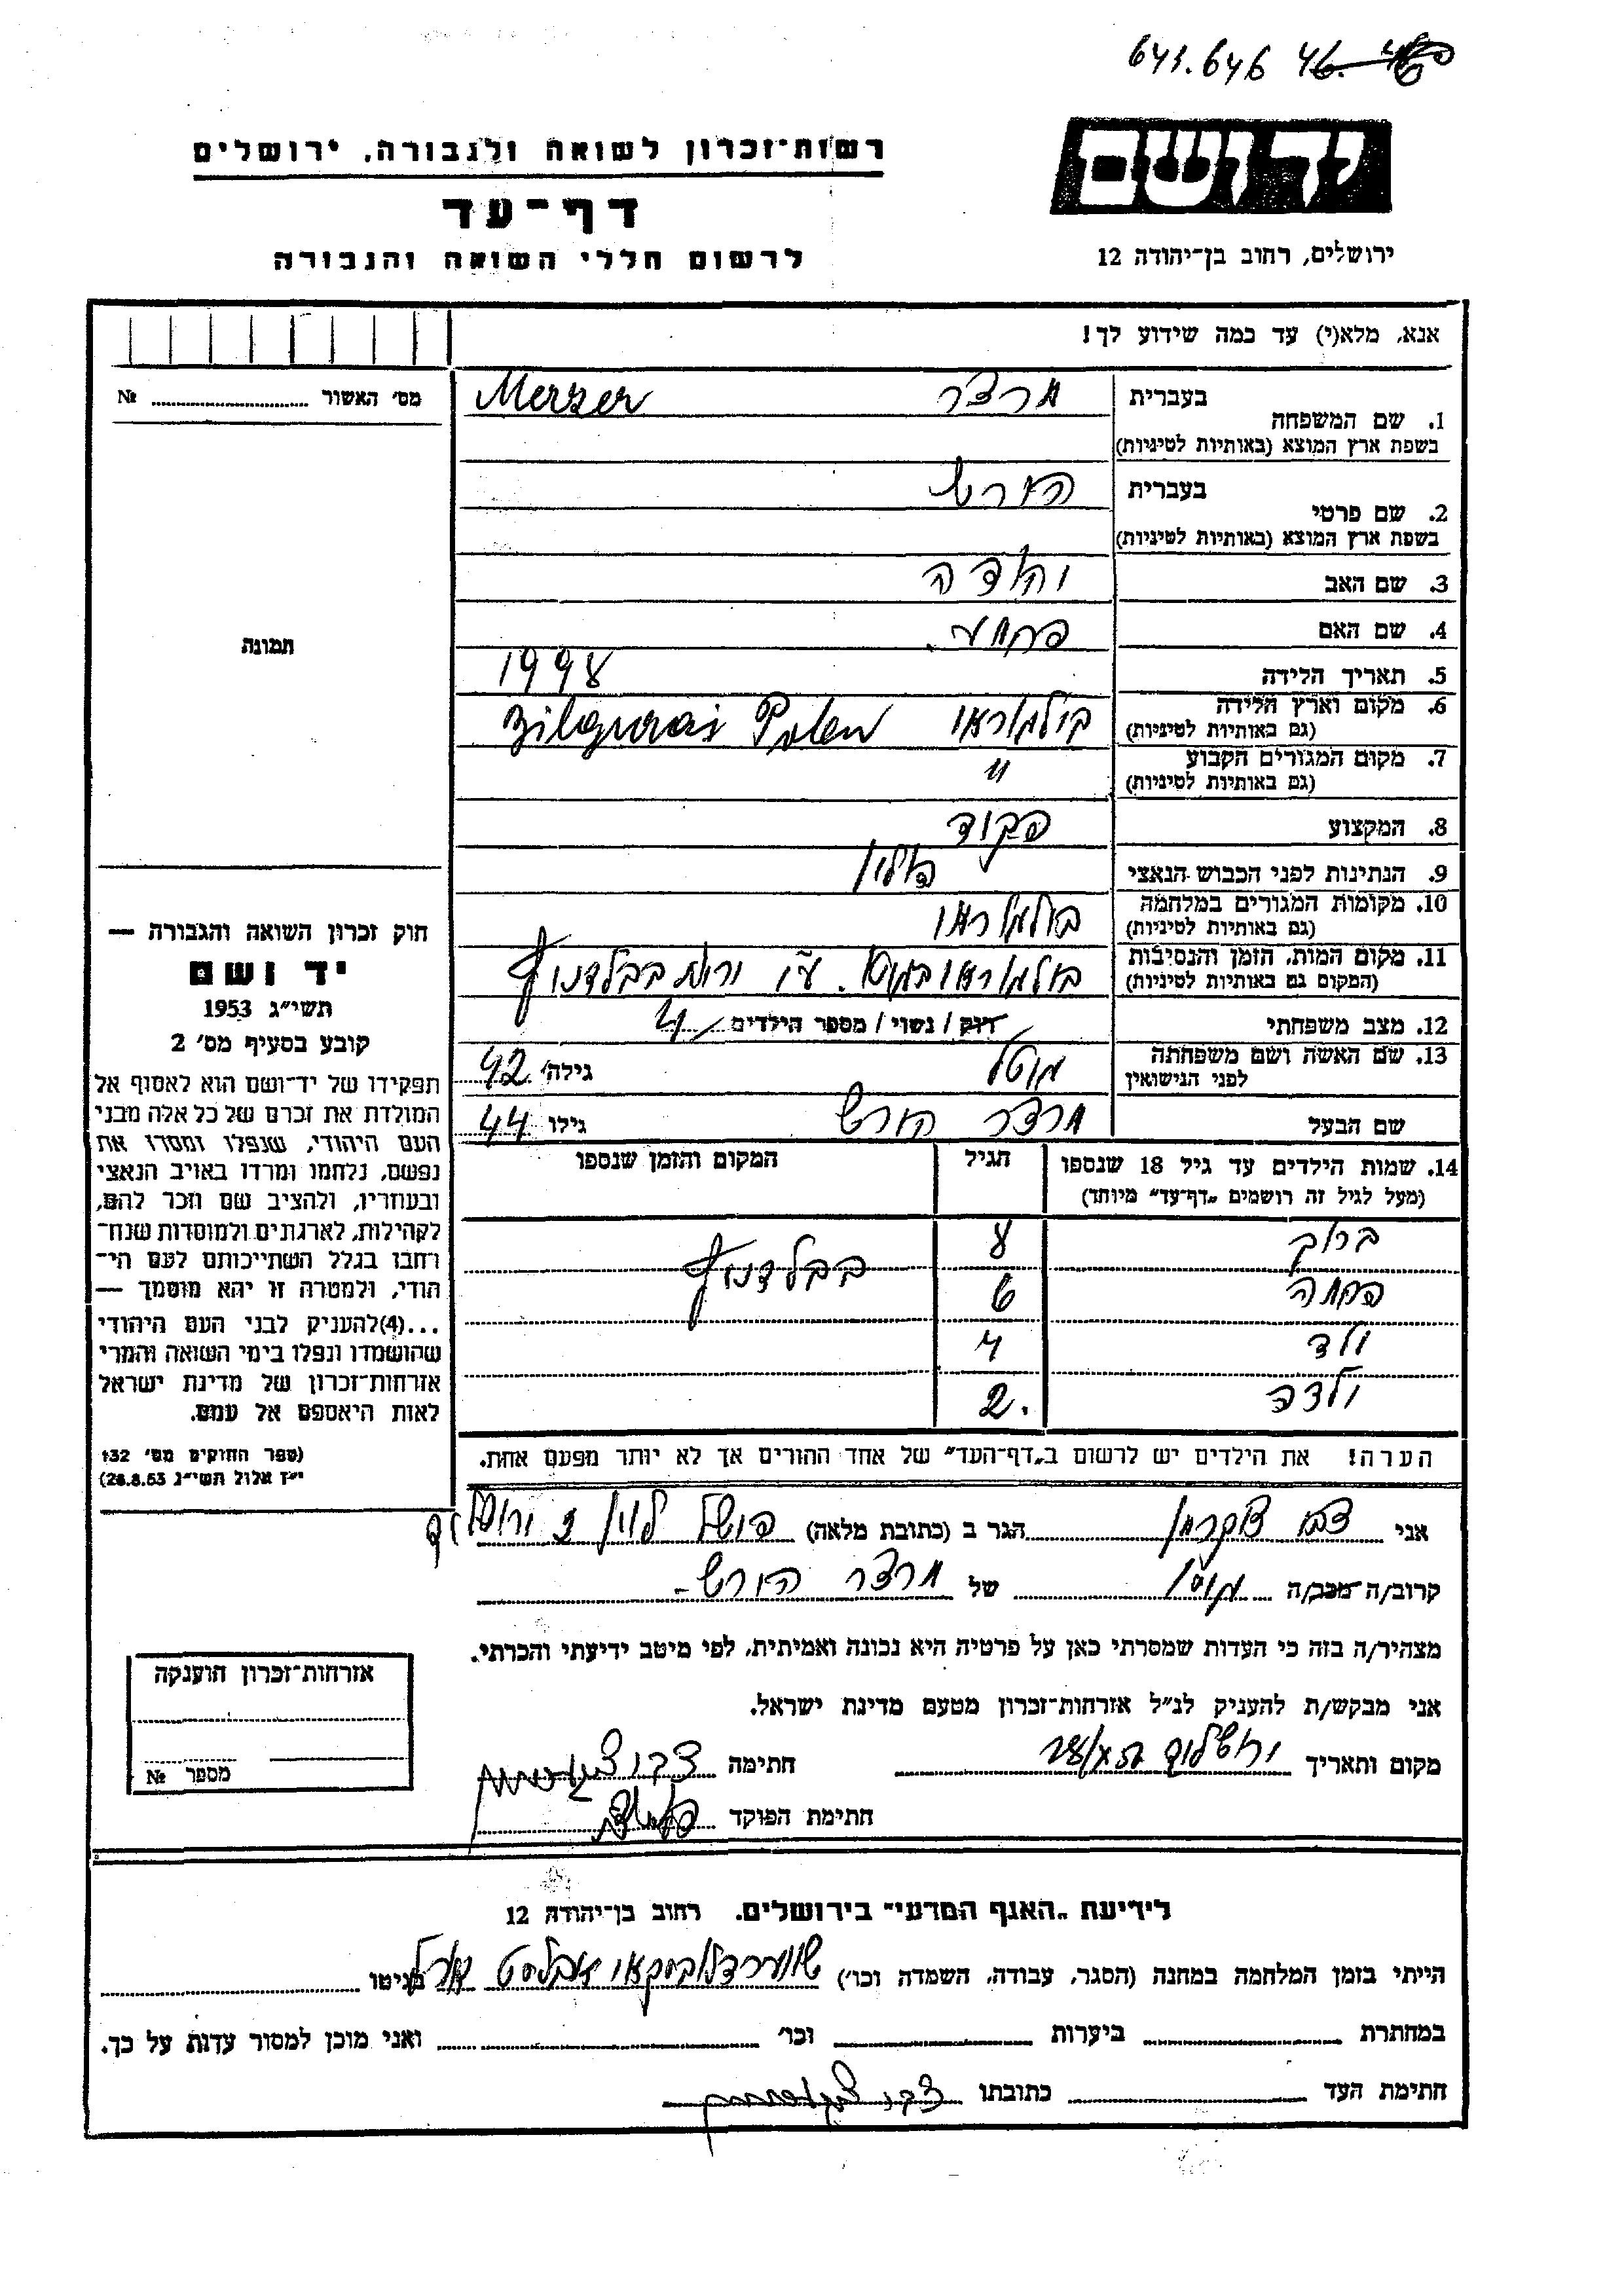 641.646 46.
רשות־זכרון לשואה ולגבורה, ירושלים
דף־עד
לרשום חללי השואה והגבורה
יד ושם
ירושלים, רחוב בן־יהודה 12
אנא, מלא(י) עד כמה שידוע לך!
מס' האשור № 
1. שם המשפחה בעברית מרצר Merzer
בשפת ארץ המוצא (באותיות לטיניות)
2. שם פרטי בעברית הערש
בשפת ארץ המוצא (באותיות לטיניות)
3. שם האב יהודה
4. שם האם
5. תאריך הלידה 1998
6. מקום וארץ הלידה בילגוראי Bilgurai Polen
(גם באותיות לטיניות)
7. מקום המגורים הקבוע "
(גם באותיות לטיניות)
8. המקצוע פקיד
9. הנתינות לפני הכבוש הנאצי פולין
10. מקומות המגורים במלחמה בילגוראי
(גם באותיות לטיניות)
11. מקום המות, הזמן והנסיבות בילגוראי
(המקום גם באותיות לטיניות)
12. מצב משפחתי רוק / נשוי / מספר הילדים 4
13. שם האשה ושם משפחתה לפני הנישואין מוטל גילה 42
שם הבעל מרצר הערש גילו 44
14. שמות הילדים עד גיל 18 שנספו הגיל המקום והזמן שנספו
(מעל לגיל זה רושמים „דף־עד" מיוחד)
ברוך 8
6
ילד 4
ילדה 2.
הערה! את הילדים יש לרשום ב„דף־העד" של אחד ההורים אך לא יותר מפעם אחת.
תמונה
חוק זכרון השואה והגבורה —
יד ושם
תשי"ג 1953
קובע בסעיף מס' 2
תפקידו של יד־ושם הוא לאסוף אל
המולדת את זכרם של כל אלה מבני
העם היהודי, שנפלו ומסרו את
נפשם, נלחמו ומרדו באויב הנאצי
ובעוזריו, ולהציב שם וזכר להם,
לקהילות, לארגונים ולמוסדות שנח־
רחבו בגלל השתייכותם לעם הי־
הודי, ולמטרה זו יהא מוסמך —
...(4) להעניק לבני העם היהודי
שהושמדו ונפלו בימי השואה והמרי
אזרחות־זכרון של מדינת ישראל
לאות היאספם אל עמם.
(ספר החוקים מס' 132
י"ז אלול תשי"ג 28.8.53)
אני צבי צוקרמן הגר ב (כתובת מלאה)
קרוב/ה־מכר/ה של מרצר הערש
מצהיר/ה בזה כי העדות שמסרתי כאן על פרטיה היא נכונה ואמיתית, לפי מיטב ידיעתי והכרתי.
אני מבקש/ת להעניק לנ"ל אזרחות־זכרון מטעם מדינת ישראל.
מקום ותאריך ירושלים חתימה
חתימת הפוקד
אזרחות־זכרון הוענקה
מספר №
לידיעת „האגף המדעי" בירושלים. רחוב בן־יהודה 12
הייתי בזמן המלחמה במחנה (הסגר, עבודה, השמדה וכו') בגיטו
במחתרת ביערות וכו' ואני מוכן למסור עדות על כך.
חתימת העד כתובתו